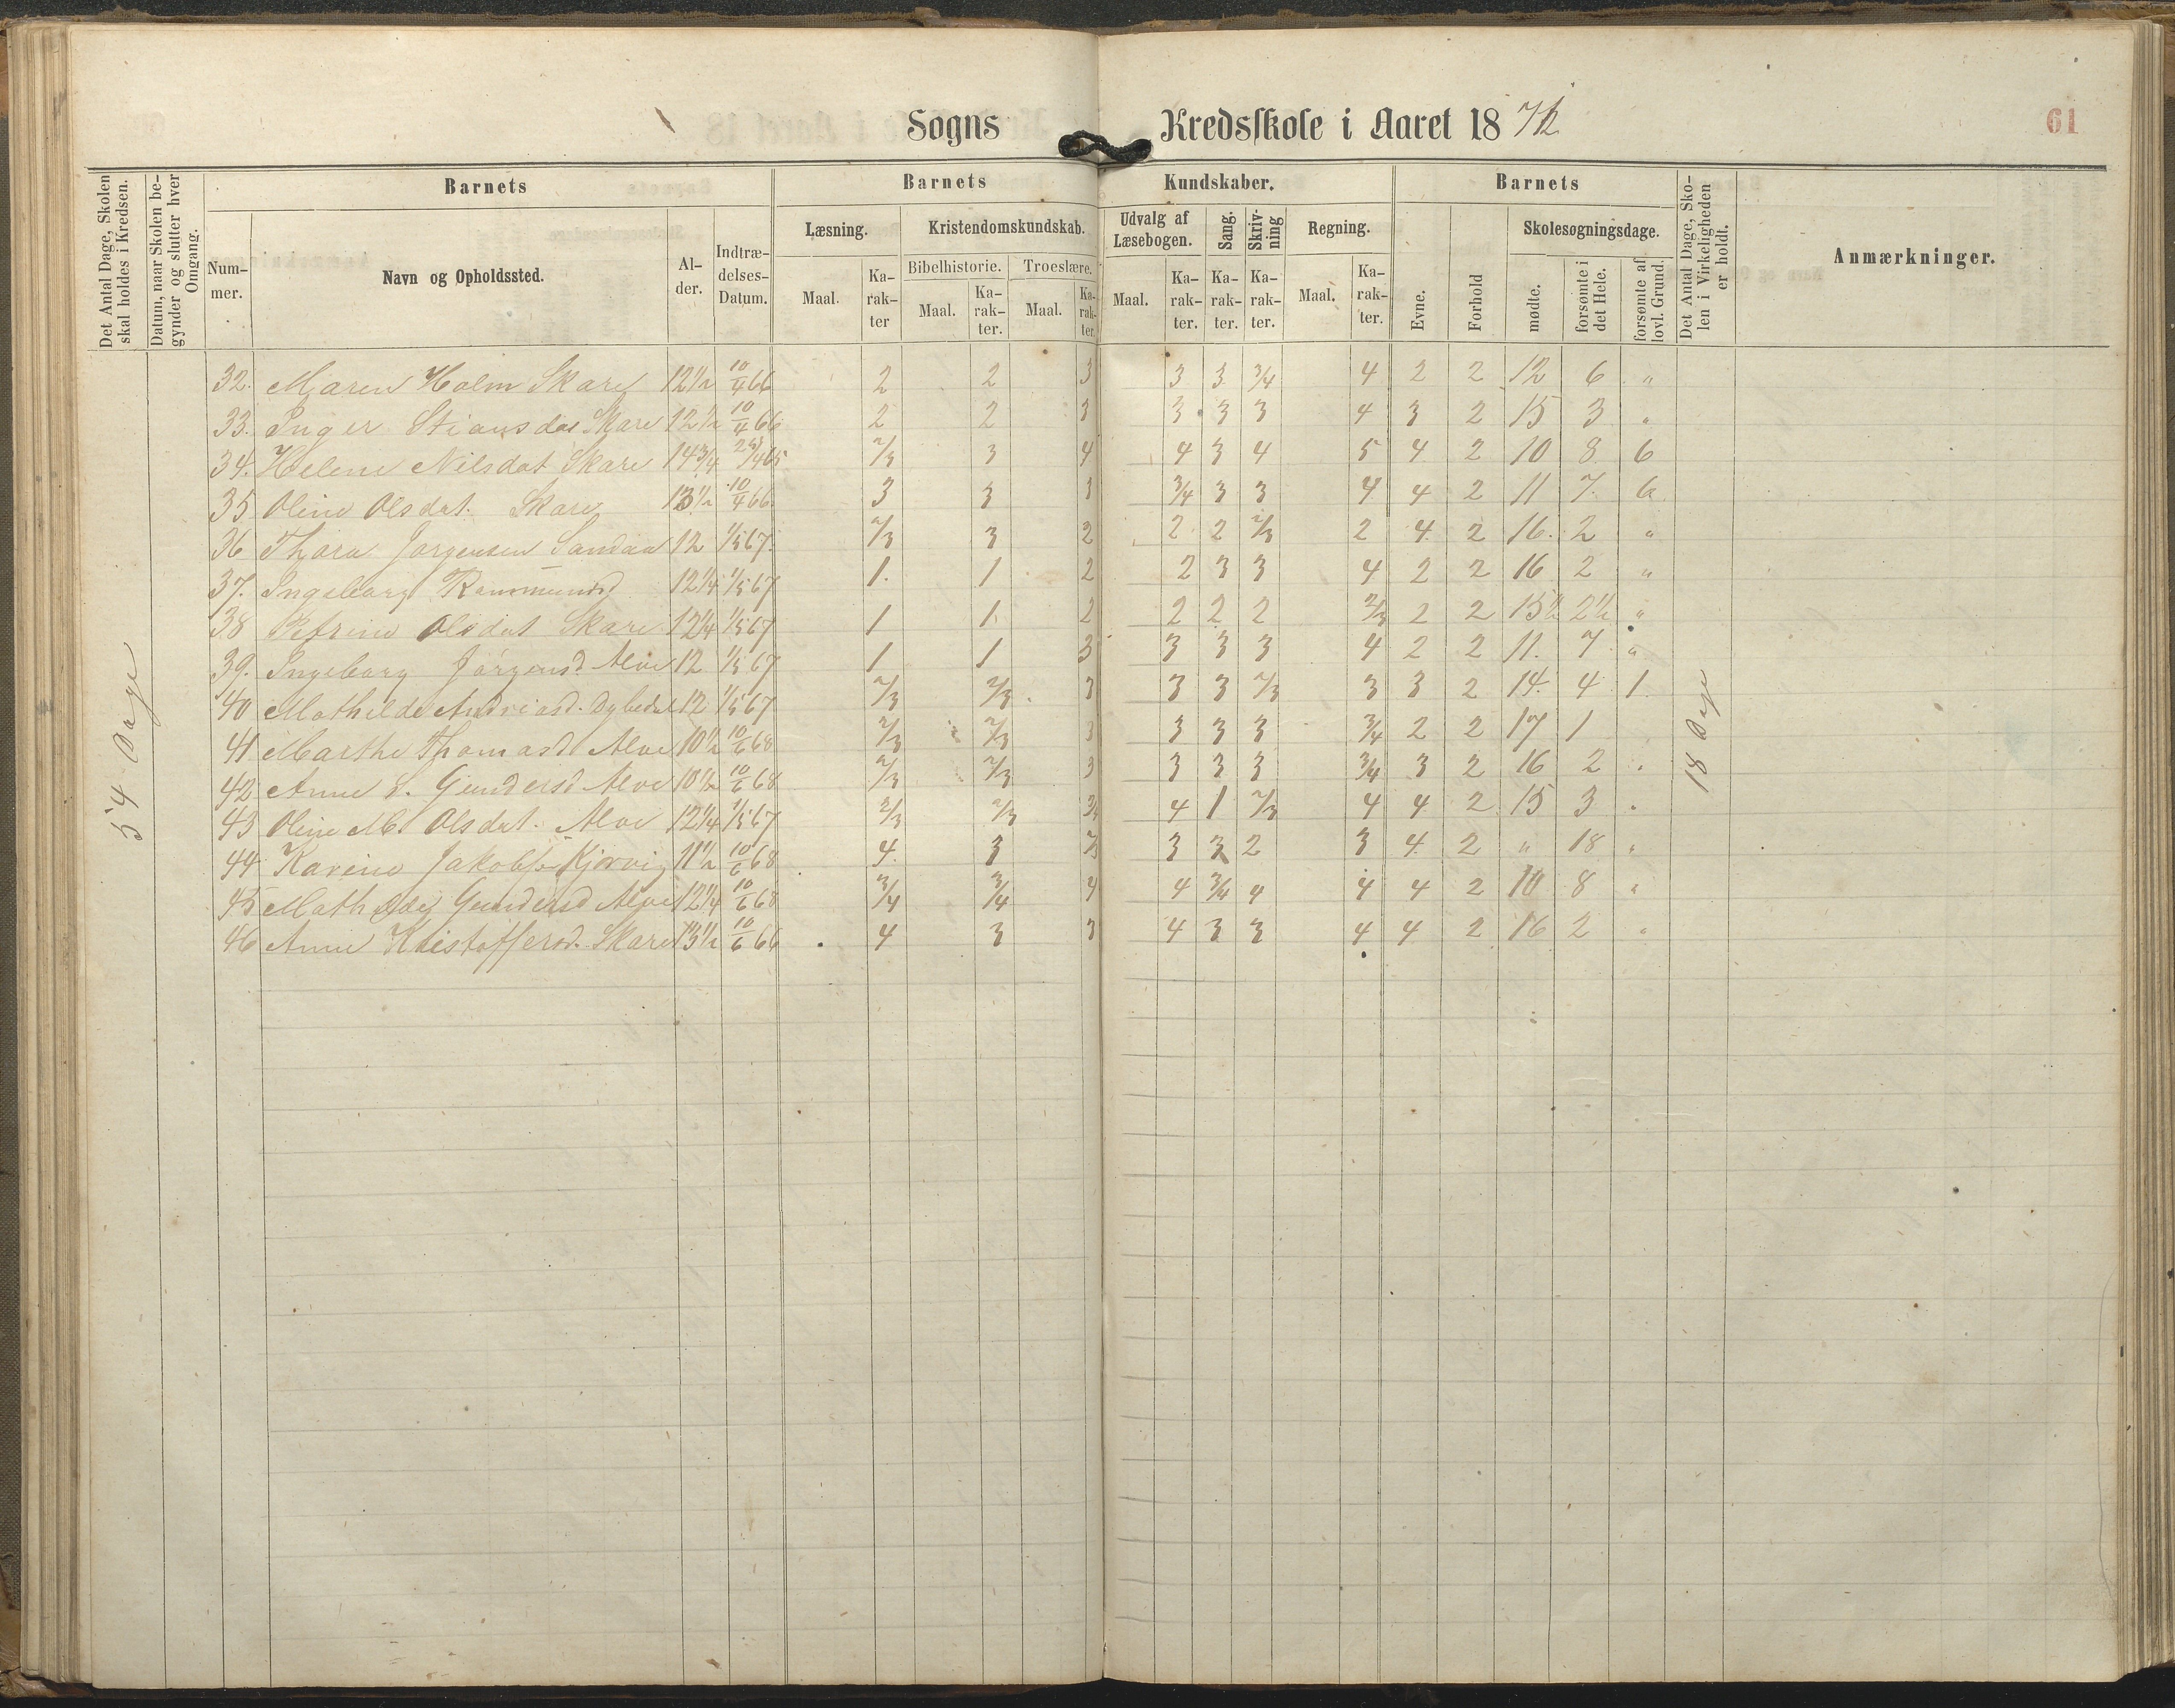 Sogns Kredsskole i Aaret 1872
61
Det Antal Dage, Skolen skal holdes i Kredsen.
Datum, naar Skolen begynder og slutter hver Omgang.
Barnets
Barnets Kundskaber.
Barnets
Det Antal Dage, Skolen i Virkeligheden er holdt.
Anmærkninger.
Nummer.
Navn og Opholdssted.
Alder.
Indtrædelses-Datum.
Læsning.
Kristendomskundskab.
Udvalg af Læsebogen.
Sang.
Skrivning
Regning.
Evne.
Forhold
Skolesøgningsdage.
Bibelhistorie.
Troeslære.
Maal.
Karakter
Maal.
Karakter.
Maal.
Karakter.
Maal.
Karakter.
Karakter.
Karakter.
Maal.
Karakter.
mødte.
forsømte i det Hele.
forsømte af lovl. Grund.
54 Dage
18 Dage
32. Maren Holm Skare 12 1/2 10/4 66 2 2 3 3 3 3/4 4 2 2 12 6 "
33. Inger Stiansdat Skare 12 1/2 10/4 66 2 2 3 3 3 3 4 3 2 15 3 "
34. Helene Nilsdat Skare 14 3/4 /4 65 2/3 3 4 4 3 4 5 4 2 10 8 6
35 Oline Olsdat. Skare 13 1/2 10/4 66 3 3 3 3/4 3 3 4 4 2 11 7 6
36 Thara Jørgensen Sandaa 12 1/5 67 2/3 3 2 2 2 2/3 2 4 2 16 2 "
37. Ingeborg 12 1/4 1/5 67 1. 1 2 2 3 3 4 2 2 16 2 "
38 Petrine Olsdat Skare 12 1/4 1/5 67 1 1 2 2 2 2 2/3 2 2 15 1/2 2 1/2 "
39. Ingeborg Jørgensd. Alve 12 1/5 67 1 1 3 3 3 3 4 2 2 11. 7 "
40 Mathilde Andreasd. Dybedal 12 1/5 67 2/3 2/3 3 3 3 2/3 3 3 2 14 4 1
41 Marthe Thomasd. Alve 10 1/2 10/6 68 2/3 2/3 3 3 3 3 3/4 2 2 17 1
42. Anne S. Gundersd Alve 10 1/2 10/6 68 2/3 2/3 3 3 3 3 3/4 3 2 16 2 "
43 Oline M. Olsdat. Alve 12 1/4 1/5 67 2/3 2/3 4 1 2/3 4 4 2 15 3 "
44 Karine Jakobs. Kjørvig 11 1/2 10/6 68 4 3 3 3 2 3 4 2 " 18 "
45 Mathilde Gundersd Alve 12 1/4 10/6 68 3/4 3/4 4 4 3/4 4 4 4 2 10 8 "
46 Anne Kristoffersd. Skare 13 1/2 10/6 66 4 3 3 4 3 3 4 4 2 16 2 "